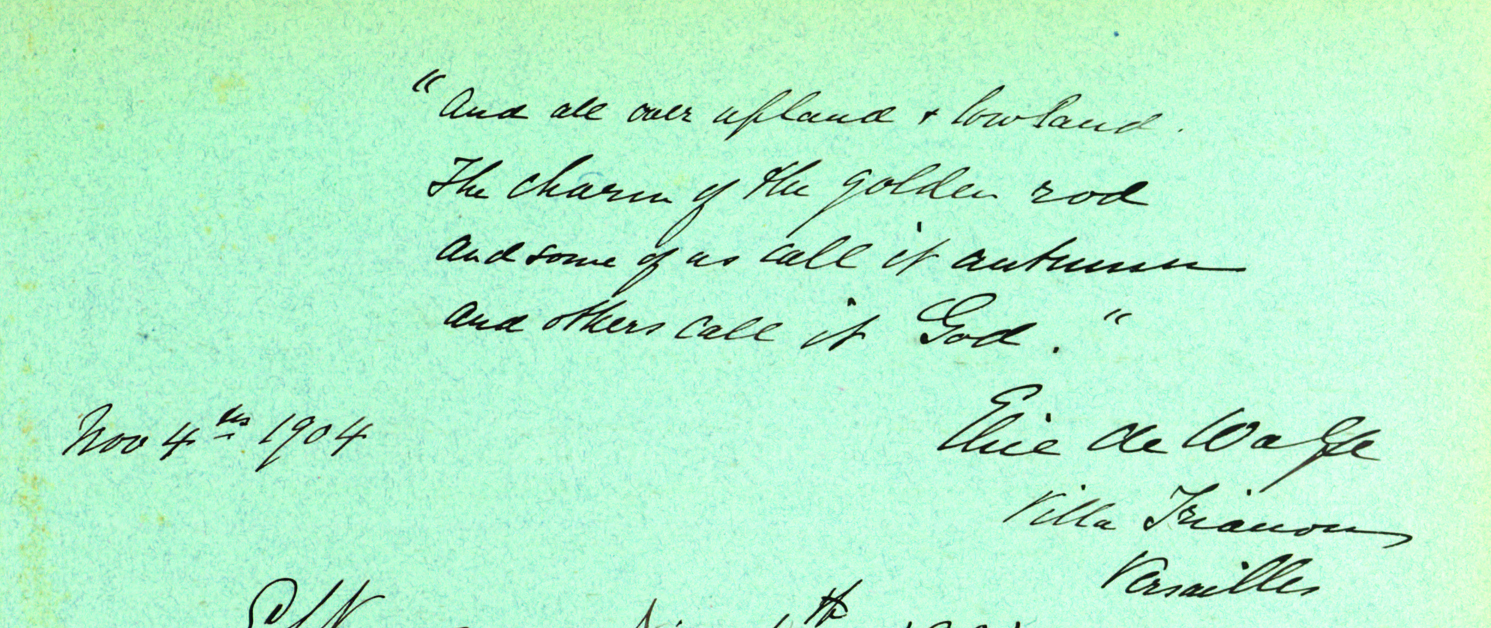 "And all over upland & lowland.
The charm of the golden rod
and some of us call it autumn
and others call it God."
Nov 4th 1904
Elsie de Wolfe
Villa Trianon
Versailles